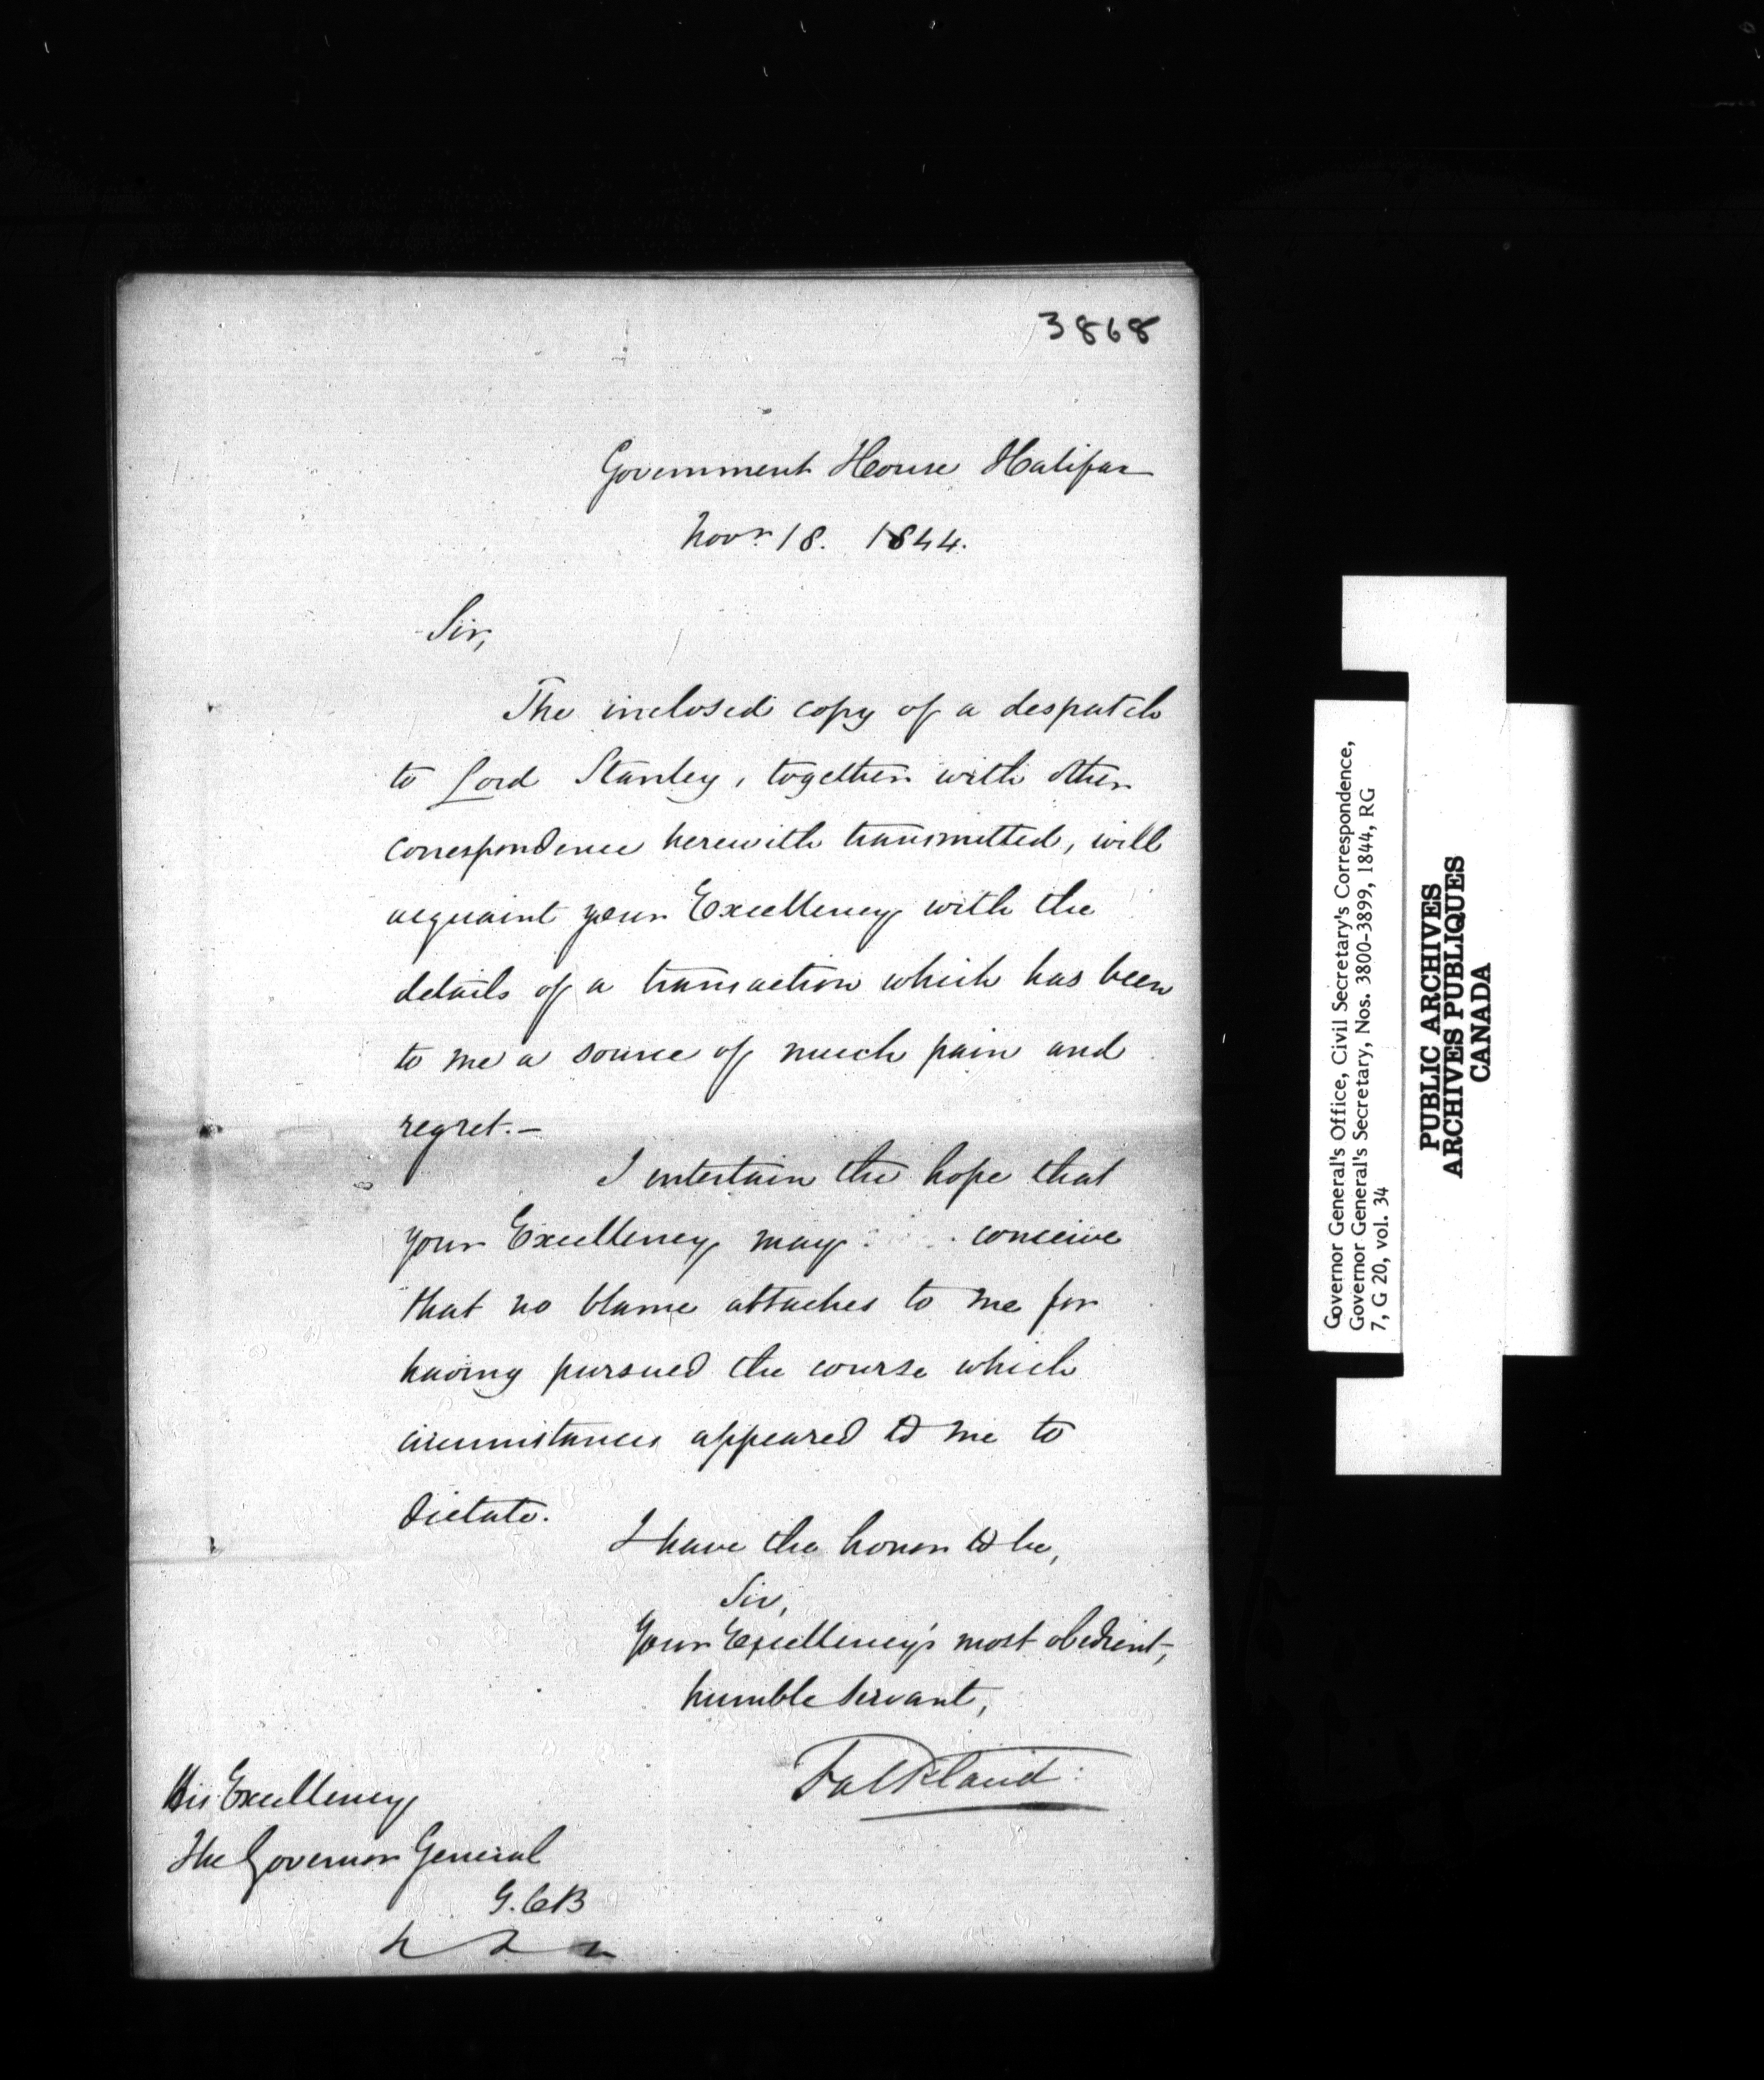 3868
Government House Halifax
Novr. 18. 1844.
Sir,
The inclosed copy of a despatch
to Lord Stanley, together with other
correspondence herewith transmitted, will
acquaint your Excellency with the
details of a transaction which has been
to me a source of much pain and
regret.—
I entertain the hope that
your Excellency may conceive
that no blame attaches to me for
having pursued the course which
circumstances appeared to me to
dictate.
I have the honor to be,
Sir,
Your Excellency's most obedient,
humble servant,
Falkland
His Excellency
The Governor General
G.C.B
Governor General's Office, Civil Secretary's Correspondence,
Governor General's Secretary, Nos. 3800-3899, 1844, RG
7, G 20, vol. 34
PUBLIC ARCHIVES
ARCHIVES PUBLIQUES
CANADA